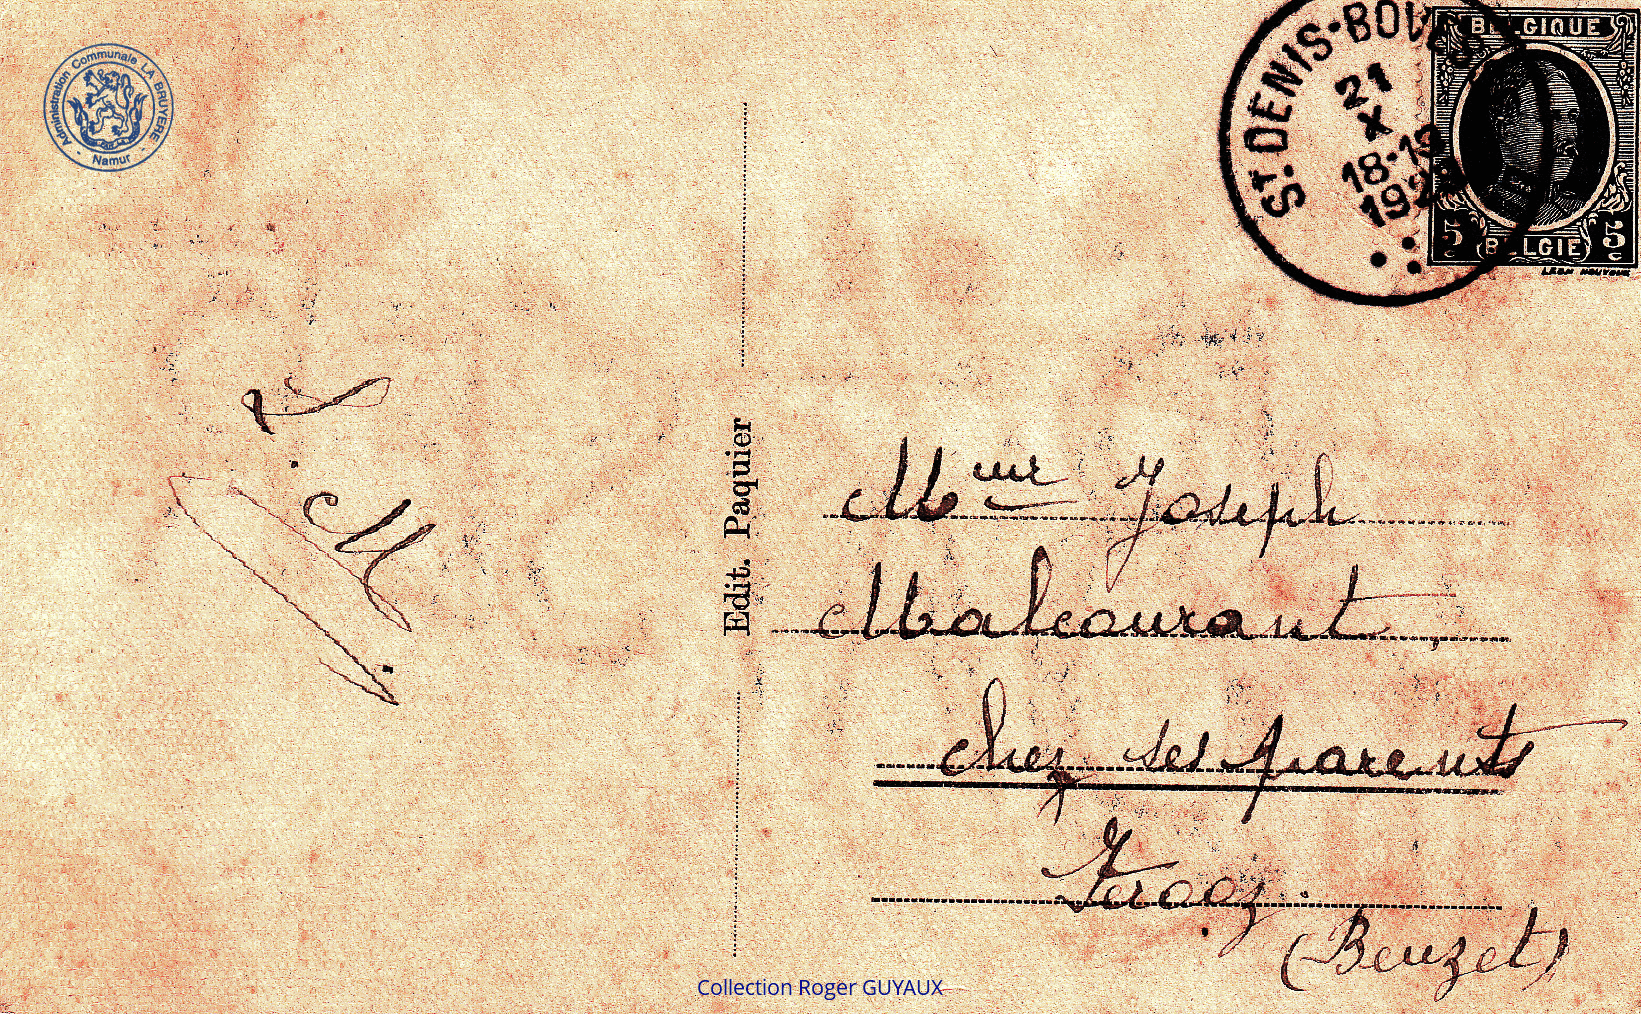 Administration Communale LA BRUYERE
- Namur -
ST. DENIS-BOV
21
X
18-19
192
BELGIQUE
5 BELGIE 5
M. L
Edit. Paquier
Mme Joseph
Malcourant,
chez ses parents
Ferooz.
(Beuzet)
Collection Roger GUYAUX